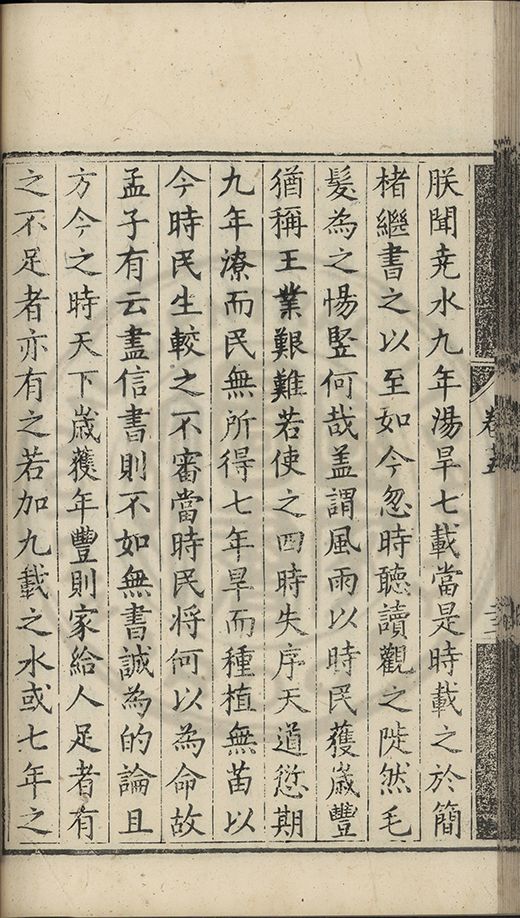 朕聞尭水九年湯旱七載當是時載之於簡
楮繼書之以至如今忽時聽讀觀之陡然毛
髮為之惕竪何哉盖謂風雨以時民獲嵗豐
猶稱王業艱難若使之四時失序天道愆期
九年潦而民無所得七年旱而種植無苗以
今時民生較之不審當時民将何以為命故
孟子有云盡信書則不如無書誠為的論且
方今之時天下嵗獲年豐則家給人足者有
之不足者亦有之若加九載之水或七年之